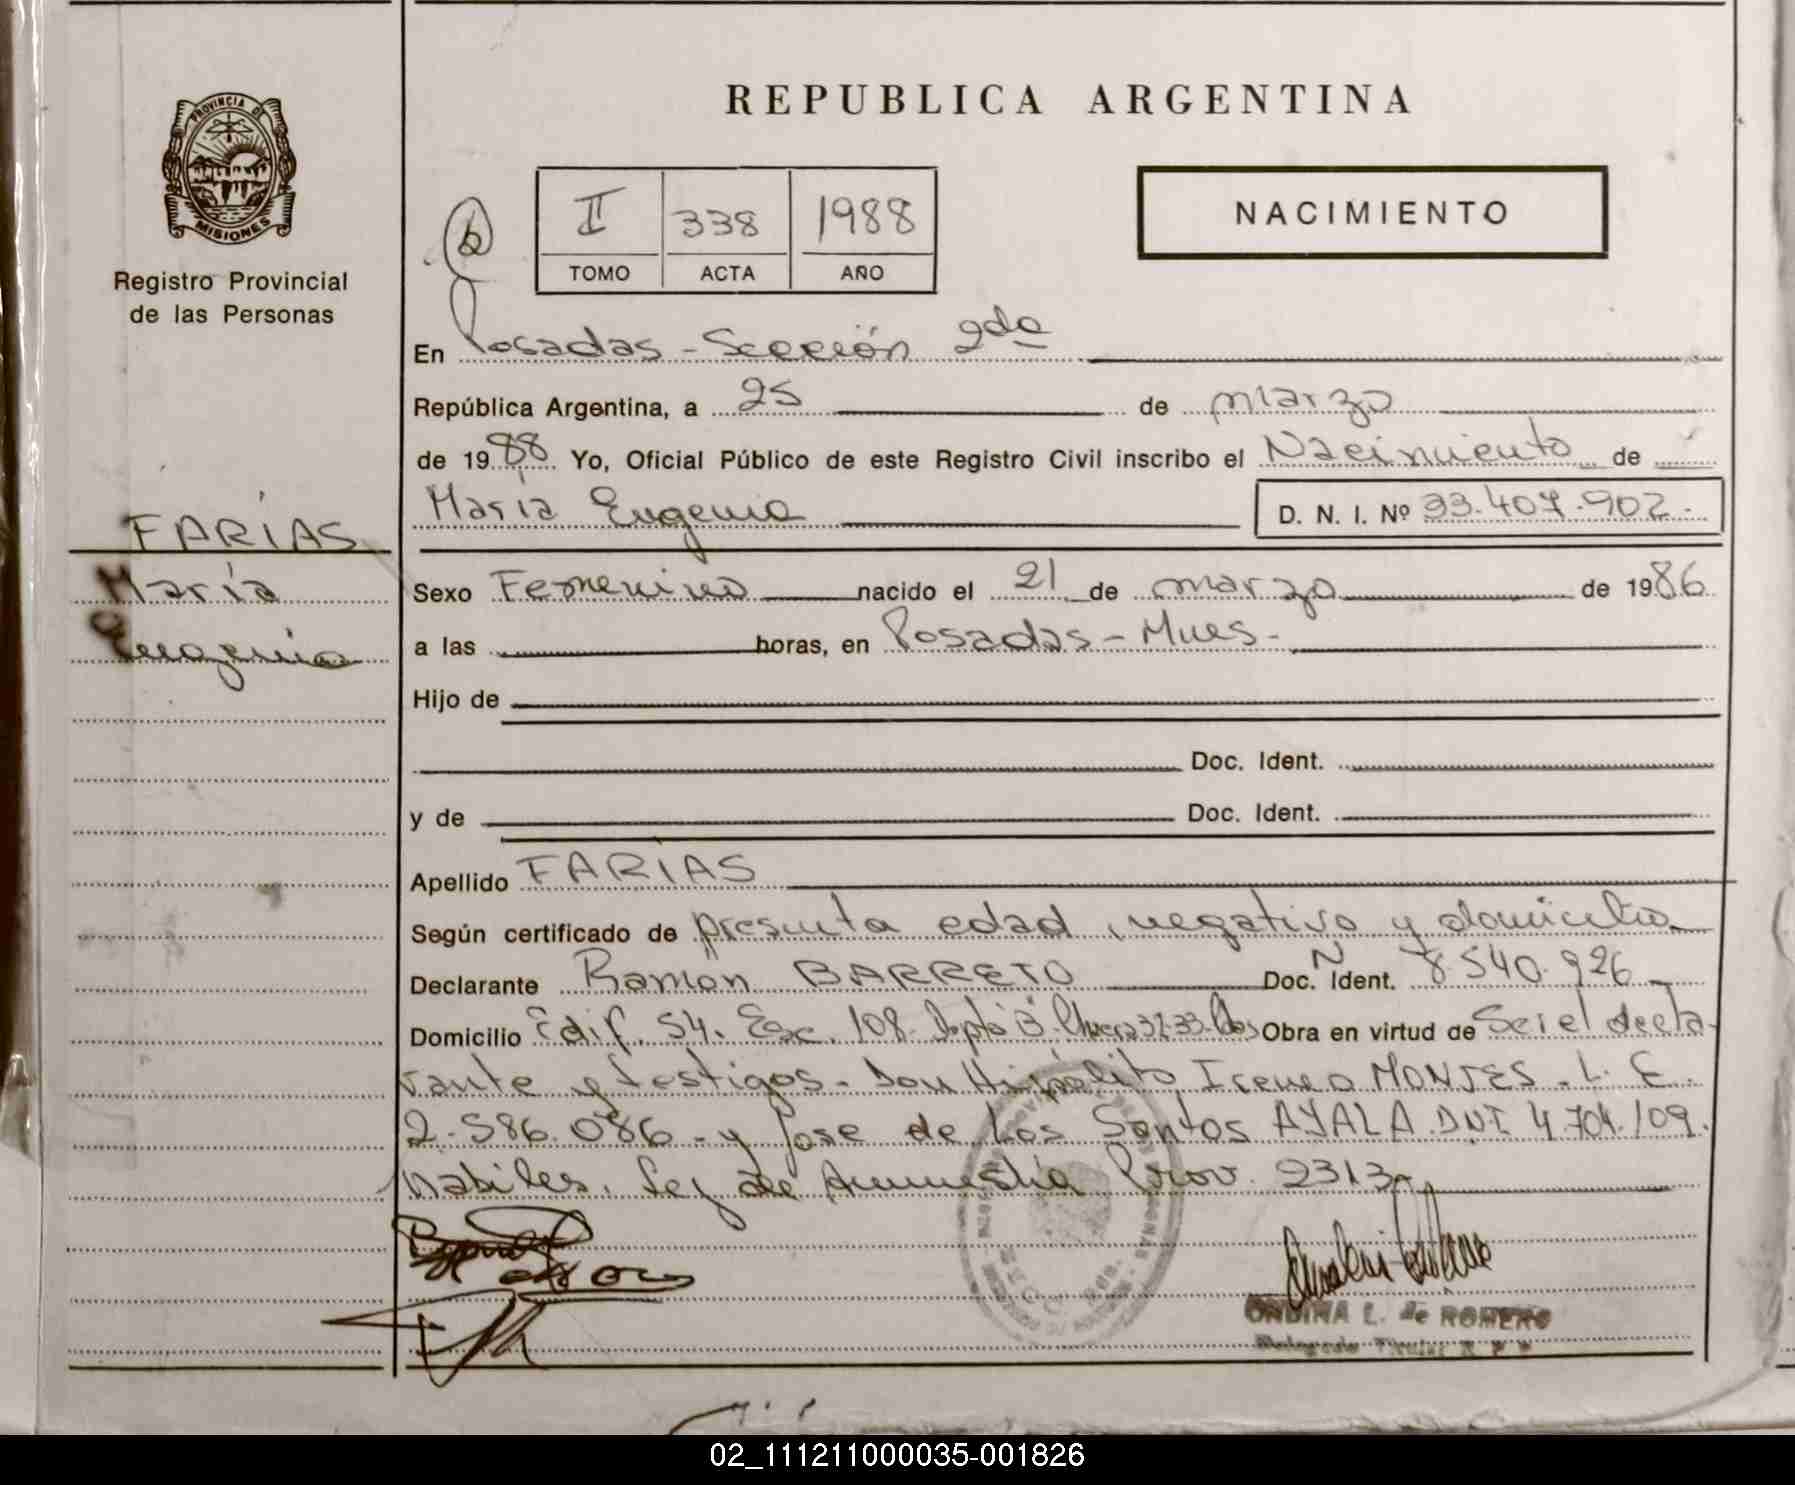 REPUBLICA ARGENTINA
PROVINCIA DE MISIONES
Registro Provincial
de las Personas
II 338 1988
TOMO ACTA AÑO
NACIMIENTO
En Posadas - Sección 2da
República Argentina, a 25 de marzo
de 1988 Yo, Oficial Público de este Registro Civil inscribo el Nacimiento de
María Eugenia D. N. I. Nº 33.407.902.-
FARÍAS
María
Eugenia
Sexo Femenino nacido el 21 de marzo de 1986
a las horas, en Posadas - Mnes -
Hijo de
Doc. Ident.
y de Doc. Ident.
Apellido FARIAS
Según certificado de presunta edad, negativo y domicilio
Declarante Ramón BARRETO Doc. Ident. 8.540.926
Domicilio Edif. 54. Esc. 108. Dpto B. Chacra 32-33- Pdas Obra en virtud de Ser el decla-
rante y testigos. Don Hipólito Ireneo MONTES. L. E.
2.586.086 - y Jose de Los Santos AYALA DNI 4.704.109.
Habiles. Ley de Amnestia Prov. 2313
ONDINA L. de ROMERO
Delegado Titular R P P
02_111211000035-001826